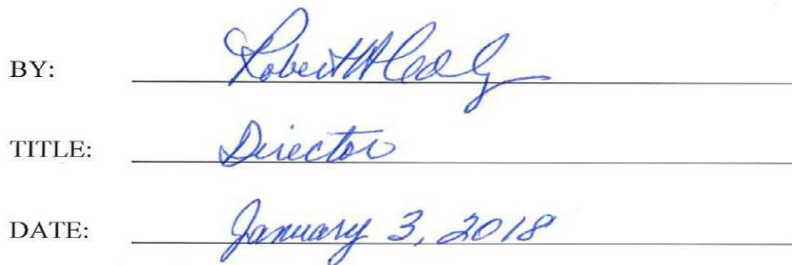 BY: Robert
TITLE: Director
DATE: January 3, 2018